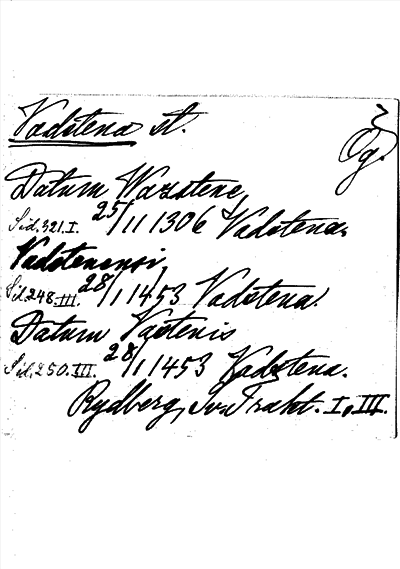 Vadstena st.
Ög.
Datum Wazstene,
Sid. 321. I. 25/11 1306 Vadstena.
Vadstenensi,
Sid. 248. III. 28/1 1453 Vadstena.
Datum Vastenis
Sid. 250. III. 28/1 1453 Vadstena.
Rydberg, Sv. Trakt. I, III.